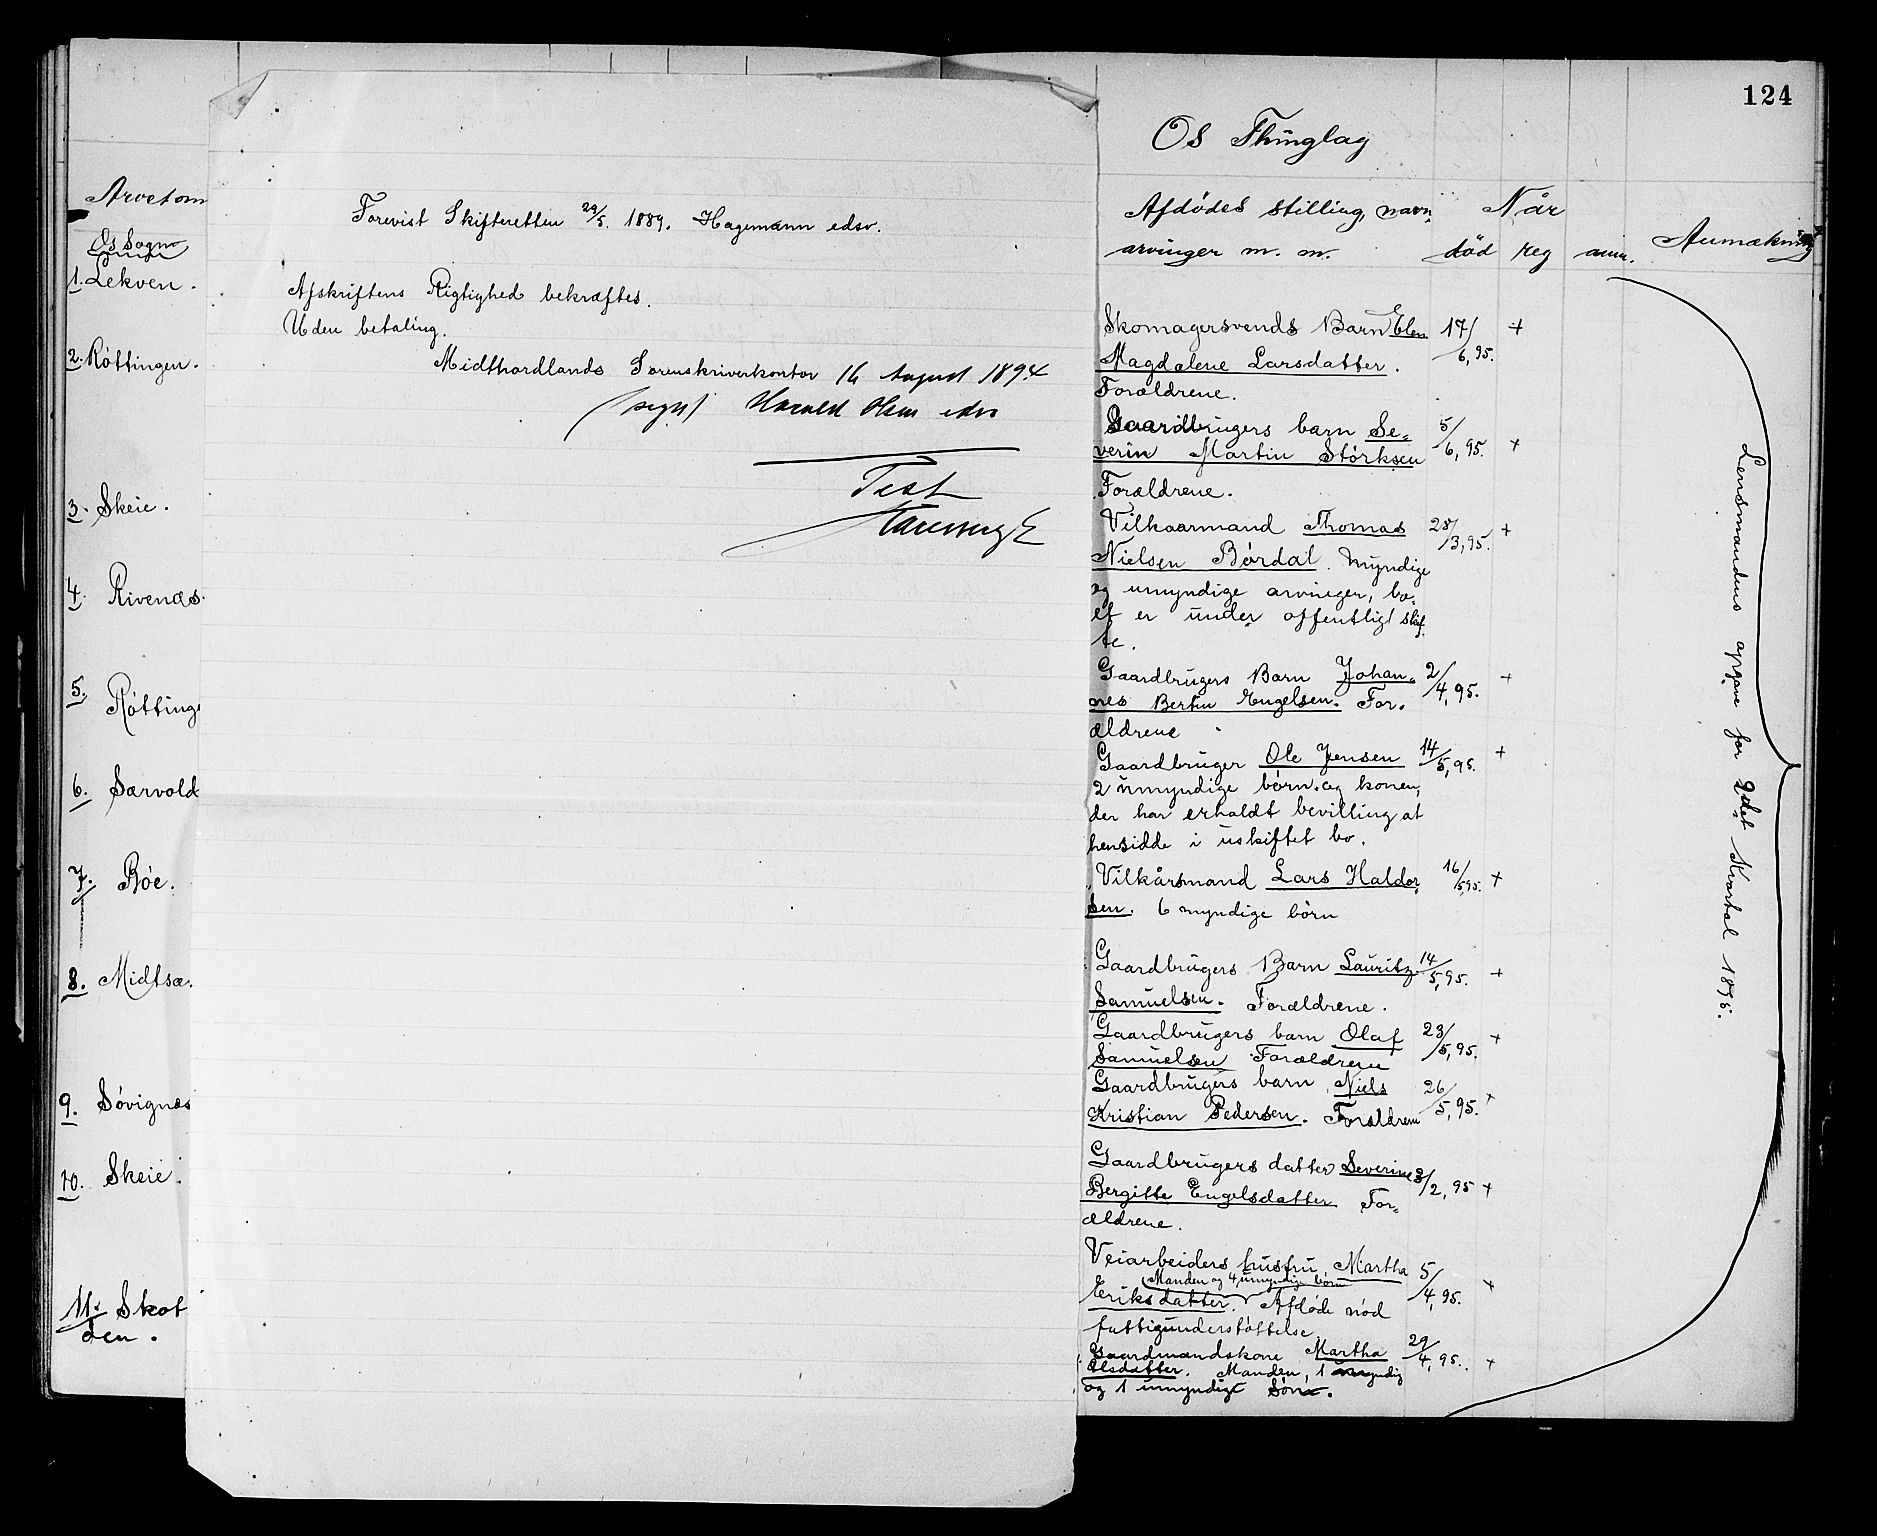 124
Arvetom
Os Sogn
1. Lekven.
2. Röttingen.
3. Skeie.
4. Rivenæs.
5. Röttinge
6. Særvold
7. Röe.
8. Midtsæ.
9. Sövignæs
10. Skeie.
11. Skot
öen.
Forevist Skifteretten 29/5. 1889. Hagemann edsv.
Afskriftens Rigtighed bekræftes.
Uden betaling.
Midthordlands Sorenskriverkontor 16 August 1894
(sign) Harald Olsen edsv
Test
Os Thinglag
Afdödes stilling, navn, Når
arvinger m. m. död reg anm. Anmækning
Skomagersvends Barn Elen 17/6, 95. +
Magdalene Larsdatter.
Forældrene.
Gaardbrugers barn Se- 5/6, 95. +
verin Martin Störksen
Forældrene.
Vilkaarmand Thomas 28/3, 95. +
Nielsen Bördal. Myndige
og umyndige arvinger, bo-
et er under offentligt skif-
te.
Gaardbrugers Barn Johan- 2/4, 95. +
nes Bertin Engelsen. For-
ældrene
Gaardbruger Ole Jensen 14/5, 95. +
2 umyndige börn og konen,
der har erholdt bevilling at
hensidde i uskiftet bo.
Vilkårsmand Lars Haldor 16/5 95. +
sen. 6 myndige börn
Gaardbrugers Barn Lauritz 14/5, 95. +
Samuelsen. Forældrene.
Gaardbrugers barn Olaf 23/5, 95. +
Samuelsen Forældrene
Gaardbrugers barn Niels 26/5, 95. +
Kristian Pedersen. Forældrene
Gaardbrugers datter Severine 3/2, 95 +
Bergitte Engelsdatter For-
ældrene.
Veiarbeiders hustru Martha 5/4, 95. +
Manden og 4 umyndige börn
Eriksdatter. Afdöde nöd
fattigunderstöttelse.
Gaardmandskone Martha 29/4, 95. +
Olsdatter. Manden, 1 myndig
og 1 umyndigt sön.
Lensmandens opgave for 2det Kvartal 1895.